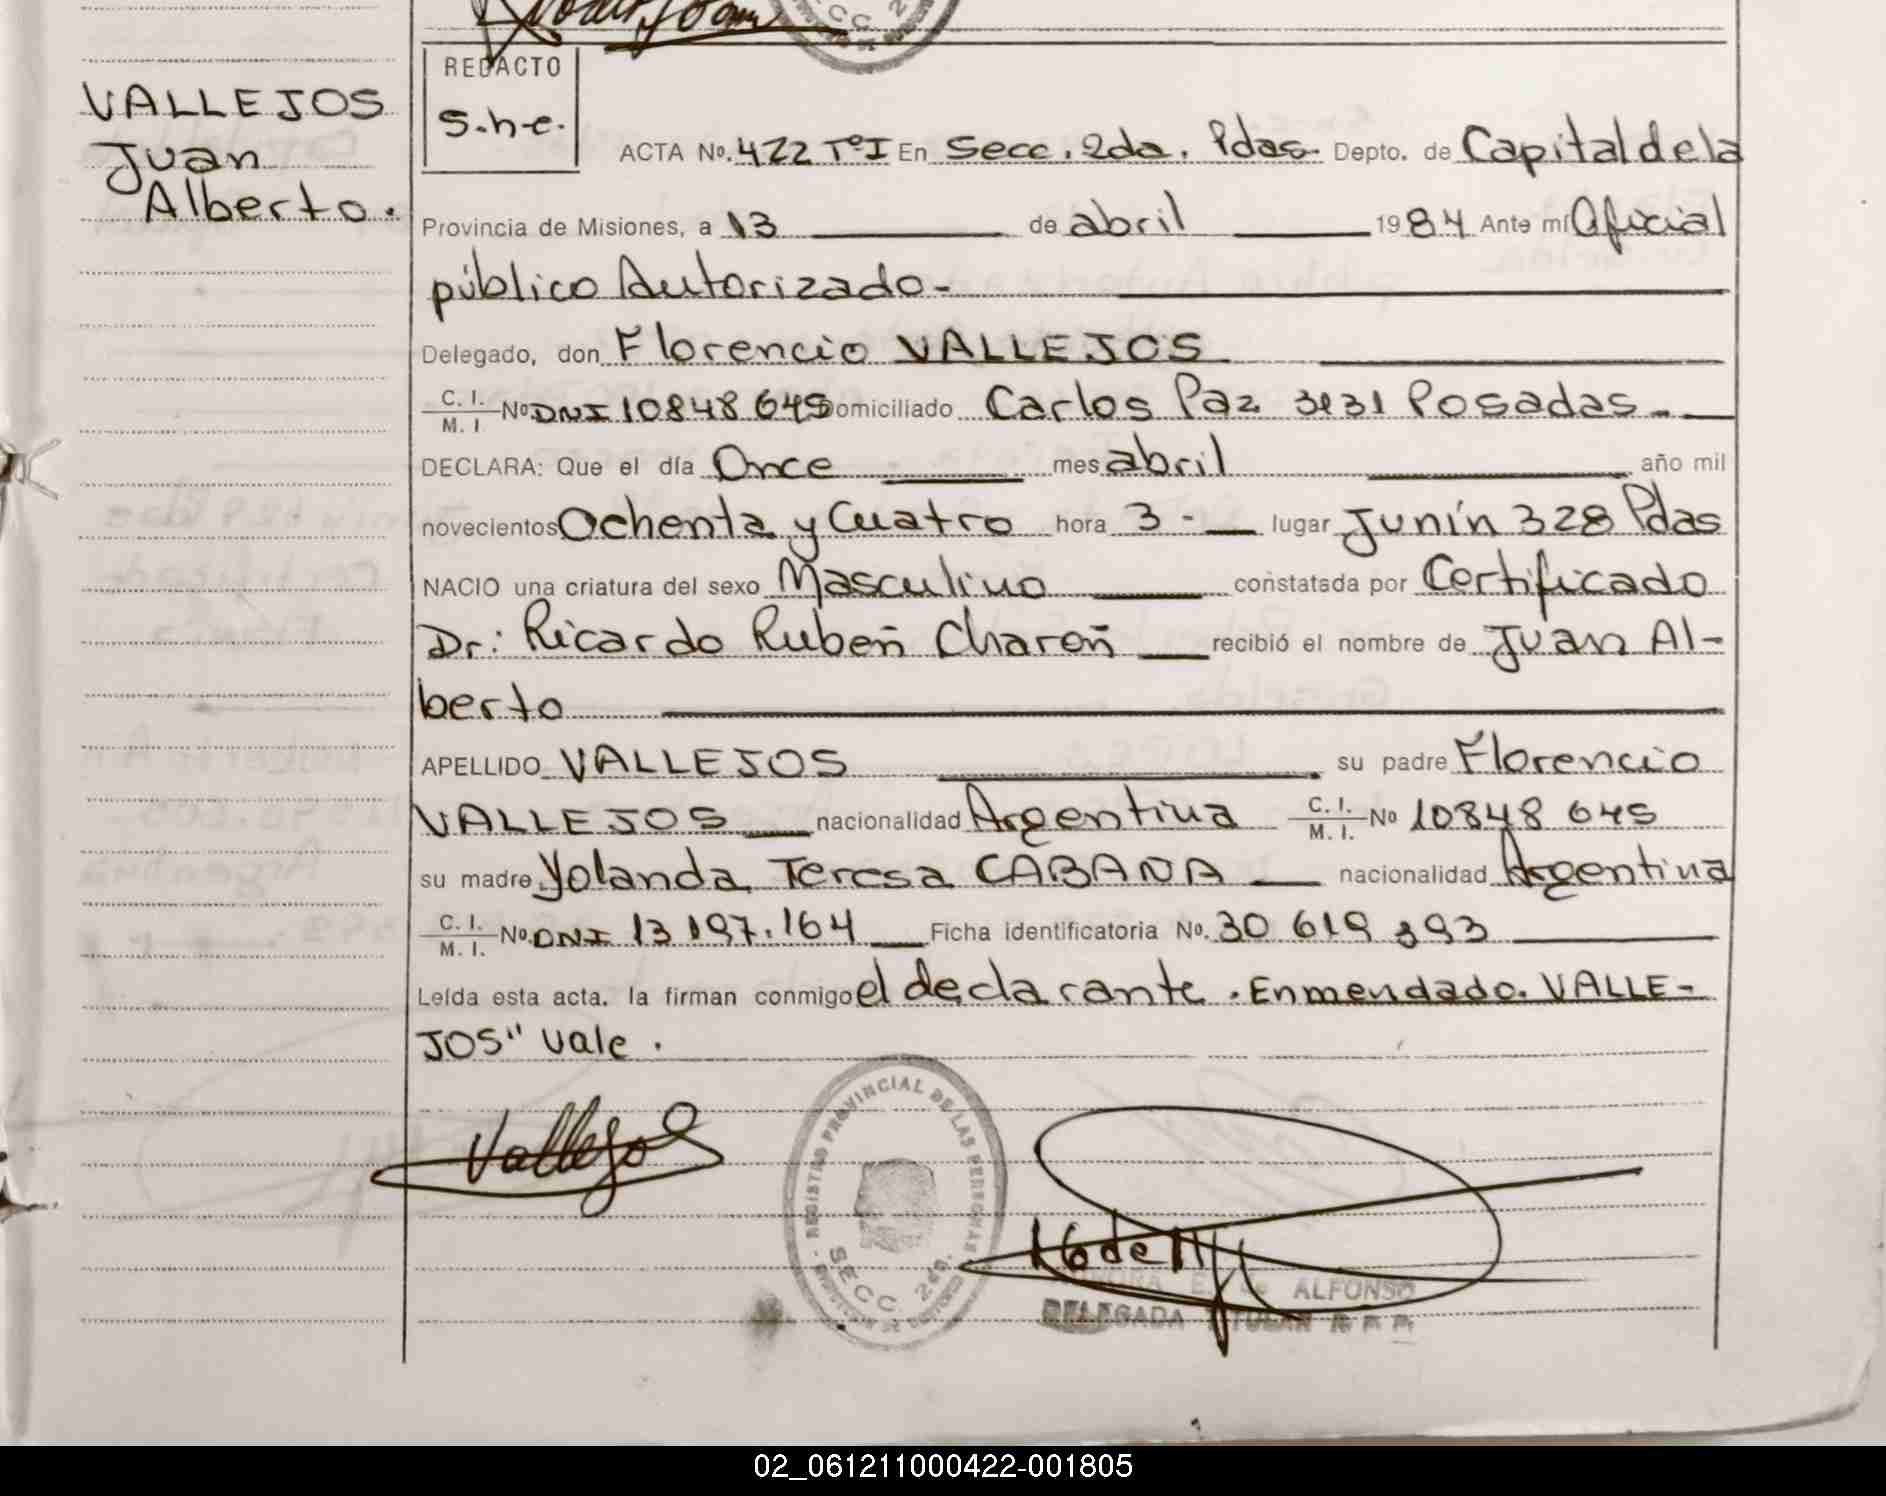 VALLEJOS
Juan
Alberto.
REDACTO
S.h.e.
ACTA No. 422 TºI En Secc. 2da. Pdas. Depto. de Capital de la
Provincia de Misiones, a 13 de abril 1984 Ante mí Oficial
público Autorizado-
Delegado, don Florencio VALLEJOS
C. I. M. I Nº DNI 10848 645 Domiciliado Carlos Paz 3131 Posadas.-
DECLARA: Que el día Once mes abril año mil
novecientos Ochenta y Cuatro hora 3- lugar Junín 328 Pdas
NACIO una criatura del sexo Masculino constatada por Certificado
Dr: Ricardo Rubeñ Chareñ recibió el nombre de Juan Al-
berto
APELLIDO VALLEJOS su padre Florencio
VALLEJOS nacionalidad Argentina C. I. M. I. Nº 10848 645
su madre Yolanda Teresa CABAÑA nacionalidad Argentina
C. I. M. I. Nº. DNI 13 197.164 Ficha identificatoria No. 30 619 393
Leída esta acta. la firman conmigo el declarante. Enmendado. VALLE-
JOS" vale.
Vallejos
REGISTRO PROVINCIAL DE LAS PERSONAS
SECC. 2da.
E. de ALFONSO
DELEGADA TITULAR R. P. P.
02_061211000422-001805